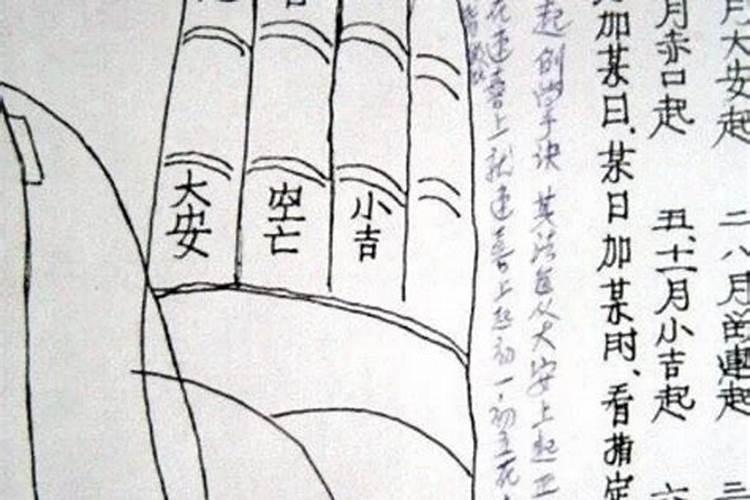 月大安起 二八月留連起 三
月赤口起 五、十一月小吉起 六
加某日、某日加某时、看指定
起 掌诀 其法每从大安上起正
速喜上 就速喜上起初一，初
小吉
空亡
大安